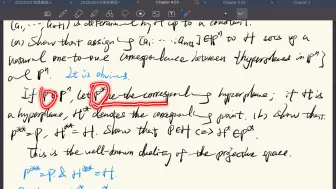 (a₁, ..., aₙ₊₁) is determined by H up to a constant.
(a) Show that assigning (a₁, ..., aₙ₊₁) ∈ Pⁿ to H sets up a
natural one-to-one correspondence between {hyperplanes in Pⁿ}
and Pⁿ. It is obvious.
If P ∈ Pⁿ, let P* be the corresponding hyperplane; if H is
a hyperplane, H* denotes the corresponding point. (b) Show that
P** = P, H** = H. Show that P ∈ H <=> H* ∈ P*.
This is the well-known duality of the projective space.
P** = P & H** = H.